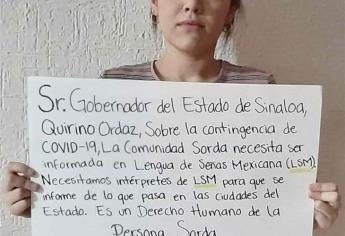 Sr. Gobernador del Estado de Sinaloa,
Quirino Ordaz, Sobre la contingencia de
COVID-19, La Comunidad Sorda necesita ser
informada en Lengua de Señas Mexicana (LSM)
Necesitamos intérpretes de LSM para que se
informe de lo que pasa en las ciudades del
Estado. Es un Derecho Humano de la
Persona Sorda